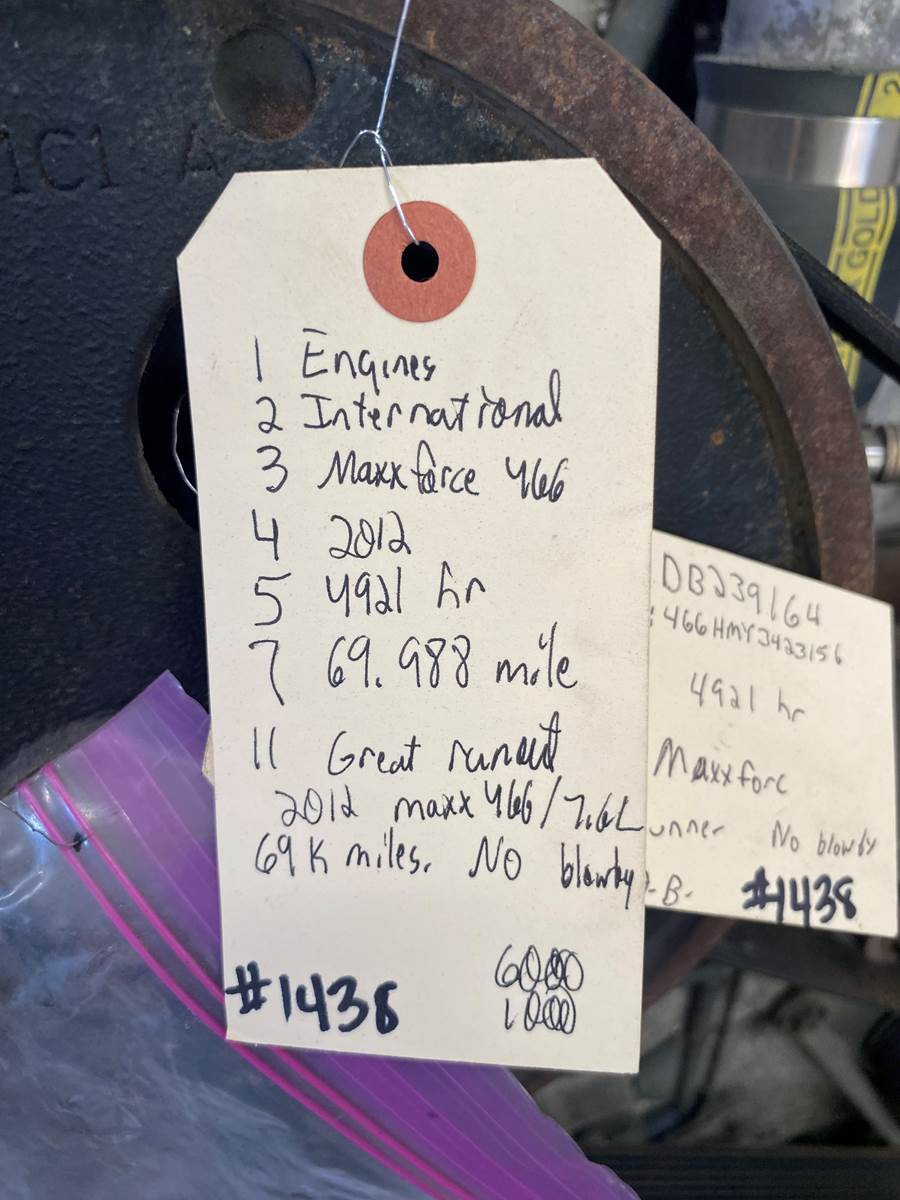 1C1 A
GOLD
1 Engines
2 International
3 Maxxforce 466
4 2012
5 4921 hr
7 69.988 mile
11 Great runout
2012 maxx 466/7.6L
69K miles. No blowby
#1438
6000
1000
DB239164
: 466HMY3423156
4921 hr
Maxxforc
unner No blowby
-B-
#1438